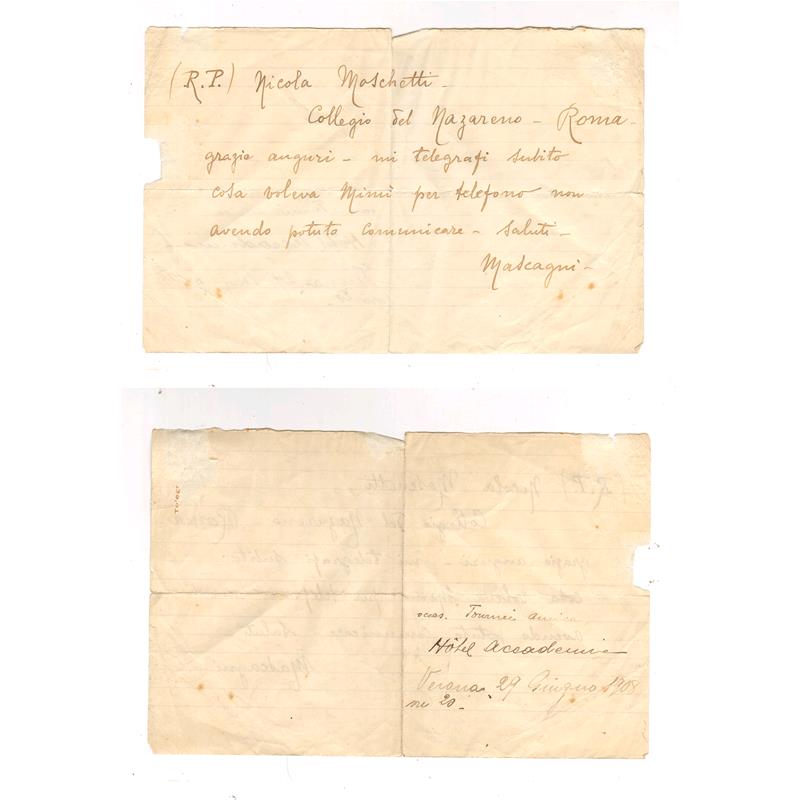 (R.P.) Nicola Moschetti -
Collegio del Nazareno - Roma -
grazie auguri - mi telegrafi subito
cosa voleva Mimì per telefono non
avendo potuto comunicare - saluti -
Mascagni -
Hôtel Accademia
Verona 29 Giugno 1908